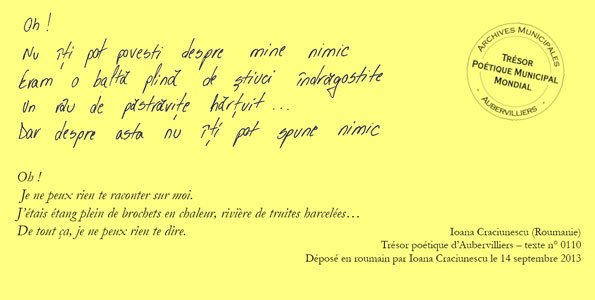 Oh !
Nu îți pot povesti despre mine nimic
Eram o baltă plină de știuci îndrăgostite
Un râu de păstrăvițe hărțuit ...
Dar despre asta nu îți pot spune nimic
ARCHIVES MUNICIPALES
TRÉSOR
POÉTIQUE MUNICIPAL
MONDIAL
- AUBERVILLIERS -
Oh !
Je ne peux rien te raconter sur moi.
J'étais étang plein de brochets en chaleur, rivière de truites harcelées…
De tout ça, je ne peux rien te dire.
Ioana Craciunescu (Roumanie)
Trésor poétique d'Aubervilliers – texte n° 0110
Déposé en roumain par Ioana Craciunescu le 14 septembre 2013